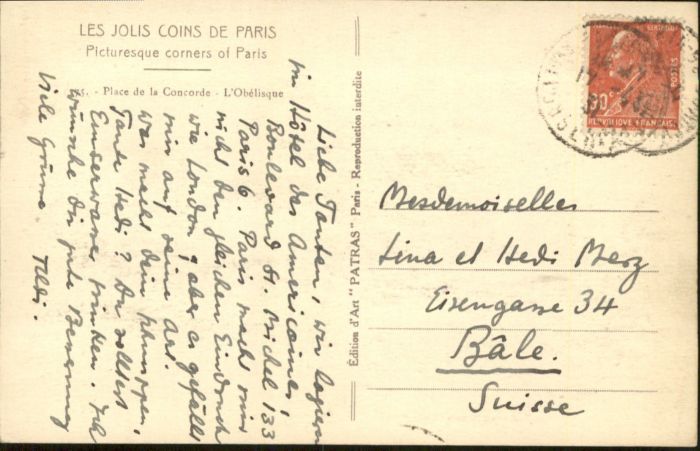 LES JOLIS COINS DE PARIS
Picturesque corners of Paris
- Place de la Concorde - L'Obélisque
Liebe Tanten, wir logieren
im Hôtel des Americaines,
Boulevard St. Michel 133
Paris 6. Paris macht mir
nicht den gleichen Eindruck
wie London, aber es gefällt
mir auf seine Art.
was macht dein Schnuppen,
Tante Hedi? Du solltest
Emserwasser trinken. Ich
wünsche dir gute Besserung
Viele Grüsse
Édition d'Art "PATRAS" Paris - Reproduction interdite
POSTES
RÉPUBLIQUE FRANÇAISE
Mesdemoiselles
Lina et Hedi Merz
Eisengasse 34
Bâle.
Suisse